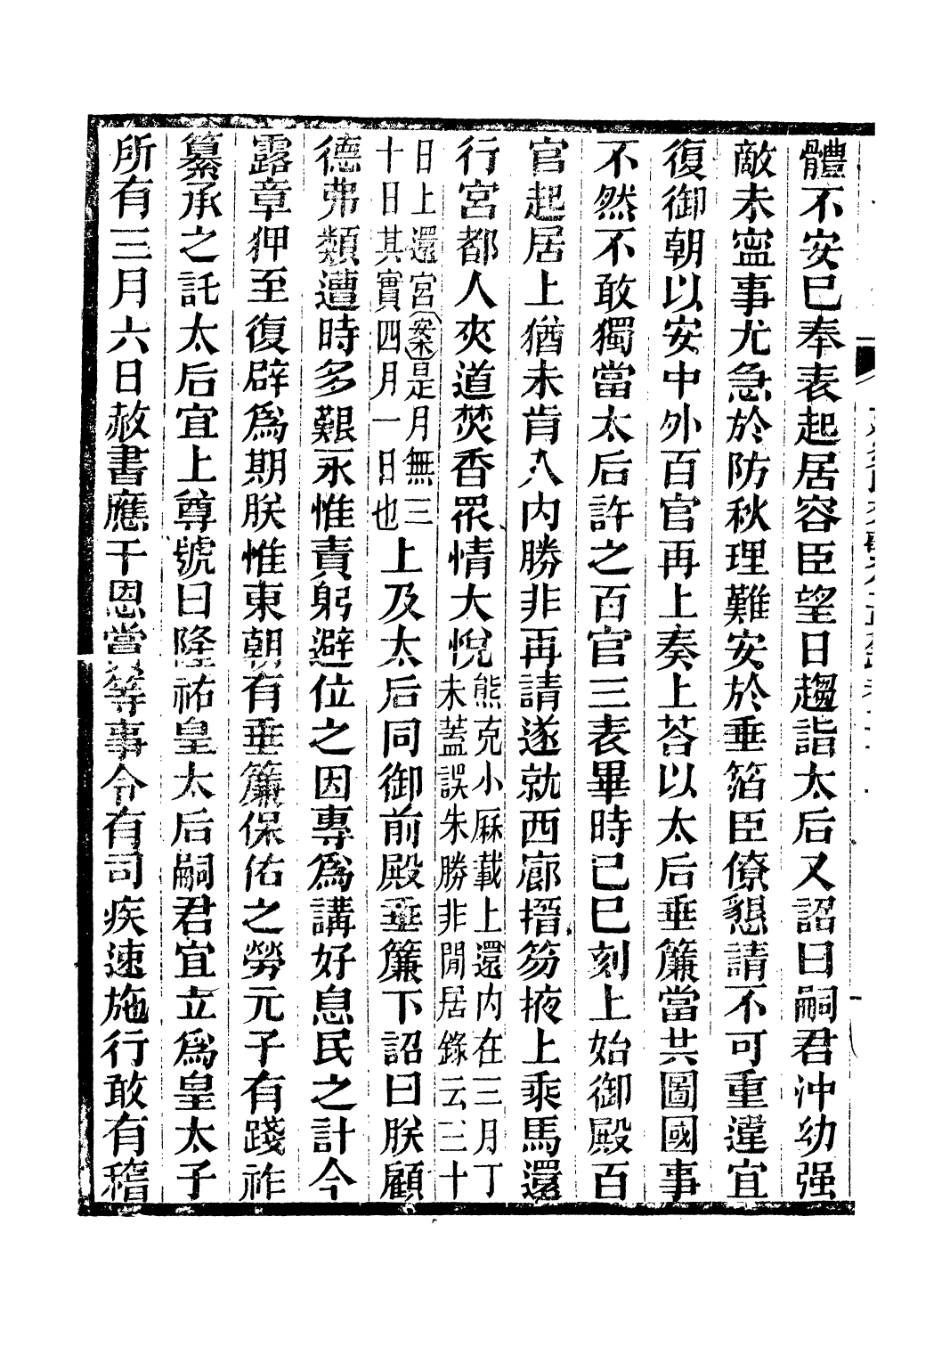 體不安已奉表起居容臣望日趨詣太后又詔曰嗣君沖幼强
敵未寍事尤急於防秋理難安於垂箔臣僚懇請不可重違宜
復御朝以安中外百官再上奏上荅以太后垂簾當共圖國事
不然不敢獨當太后許之百官三表畢時已巳刻上始御殿百
官起居上猶未肯入內勝非再請遂就西廊搢笏掖上乘馬還
行宮都人夾道焚香眾情大悅熊克小厤載上還内在三月丁
未蓋誤朱勝非閒居錄云三十
日上還宮案是月無三
十日其實四月一日也上及太后同御前殿垂簾下詔曰朕顧
德弗類遭時多艱永惟責躬避位之因專爲講好息民之計今
露章狎至復辟爲期朕惟東朝有垂簾保佑之勞元子有踐祚
纂承之託太后宜上尊號曰隆祐皇太后嗣君宜立爲皇太子
所有三月六日赦書應干恩賞等事令有司疾速施行敢有稽